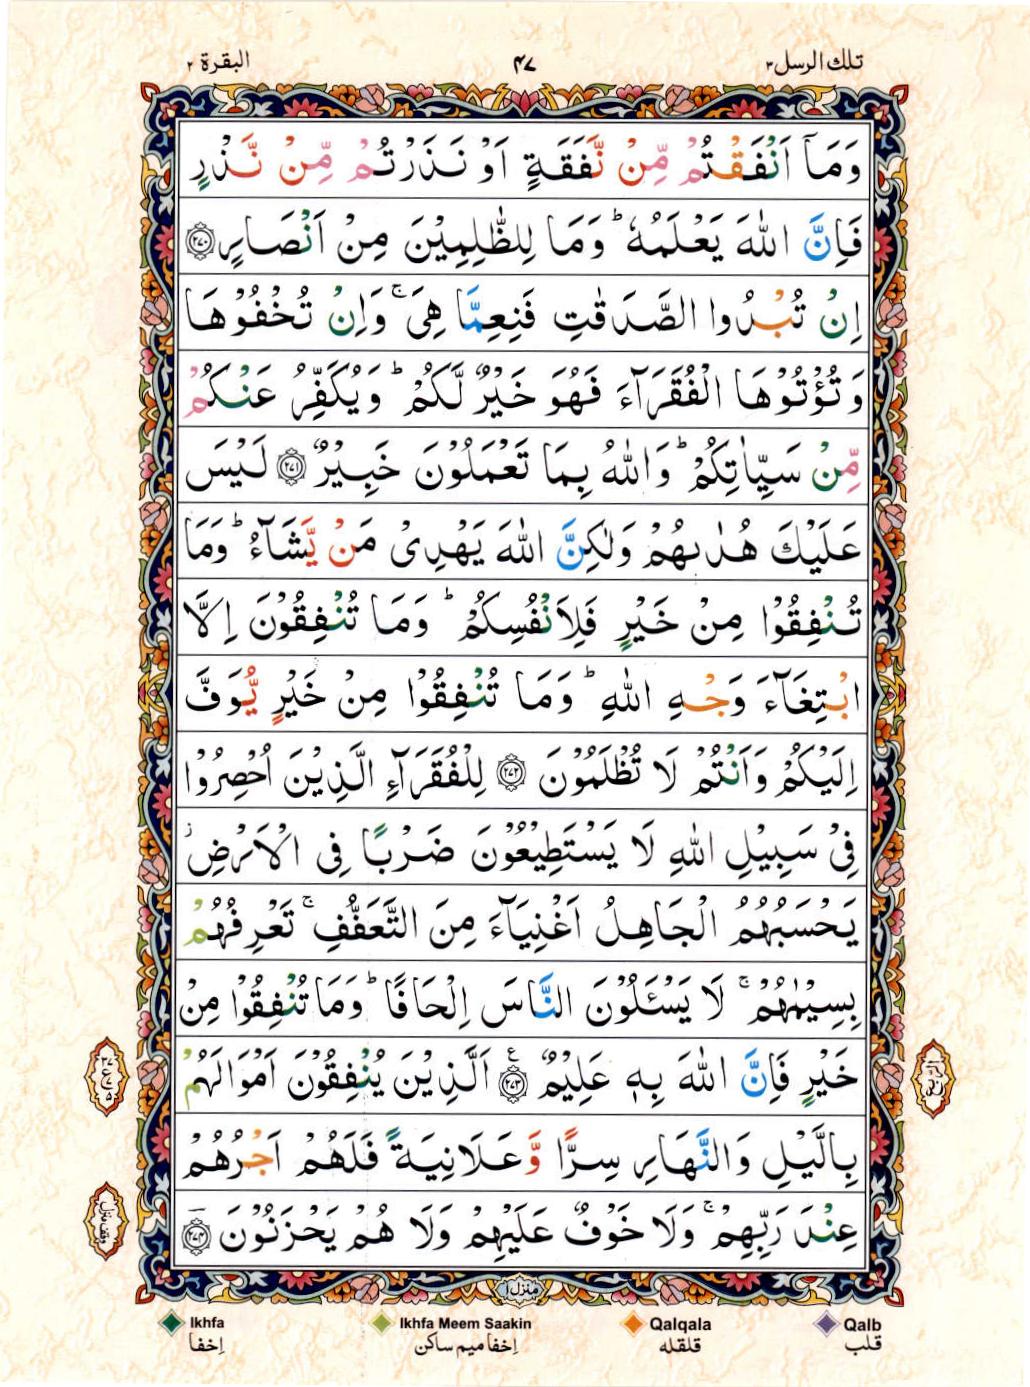 تلك الرسل ٣
٤٧
البقرة ٢
وَمَآ اَنْفَقْتُمْ مِّنْ نَّفَقَةٍ اَوْ نَذَرْتُمْ مِّنْ نَّذْرٍ
فَاِنَّ اللّٰهَ يَعْلَمُهٗ ؕ وَمَا لِلظّٰلِمِيْنَ مِنْ اَنْصَارٍ ۝٢٧٠
اِنْ تُبْدُوا الصَّدَقٰتِ فَنِعِمَّا هِيَ ۚ وَاِنْ تُخْفُوْهَا
وَتُؤْتُوْهَا الْفُقَرَآءَ فَهُوَ خَيْرٌ لَّكُمْ ؕ وَيُكَفِّرُ عَنْكُمْ
مِّنْ سَيِّاٰتِكُمْ ؕ وَاللّٰهُ بِمَا تَعْمَلُوْنَ خَبِيْرٌ ۝٢٧١ لَيْسَ
عَلَيْكَ هُدٰىهُمْ وَلٰكِنَّ اللّٰهَ يَهْدِىْ مَنْ يَّشَآءُ ؕ وَمَا
تُنْفِقُوْا مِنْ خَيْرٍ فَلِاَنْفُسِكُمْ ؕ وَمَا تُنْفِقُوْنَ اِلَّا
ابْتِغَآءَ وَجْهِ اللّٰهِ ؕ وَمَا تُنْفِقُوْا مِنْ خَيْرٍ يُّوَفَّ
اِلَيْكُمْ وَاَنْتُمْ لَا تُظْلَمُوْنَ ۝٢٧٢ لِلْفُقَرَآءِ الَّذِيْنَ اُحْصِرُوْا
فِىْ سَبِيْلِ اللّٰهِ لَا يَسْتَطِيْعُوْنَ ضَرْبًا فِى الْاَرْضِ ؗ
يَحْسَبُهُمُ الْجَاهِلُ اَغْنِيَآءَ مِنَ التَّعَفُّفِ ۚ تَعْرِفُهُمْ
بِسِيْمٰهُمْ ۚ لَا يَسْئَلُوْنَ النَّاسَ اِلْحَافًا ؕ وَمَا تُنْفِقُوْا مِنْ
خَيْرٍ فَاِنَّ اللّٰهَ بِهٖ عَلِيْمٌ ۝٢٧٣ ع اَلَّذِيْنَ يُنْفِقُوْنَ اَمْوَالَهُمْ
بِالَّيْلِ وَالنَّهَارِ سِرًّا وَّعَلَانِيَةً فَلَهُمْ اَجْرُهُمْ
عِنْدَ رَبِّهِمْ ۚ وَلَا خَوْفٌ عَلَيْهِمْ وَلَا هُمْ يَحْزَنُوْنَ ۝٢٧٤
الربع
وقف منزل
منزل ١
Ikhfa
Ikhfa Meem Saakin
Qalqala
Qalb
إخفا
إخفا ميم ساكن
قلقله
قلب